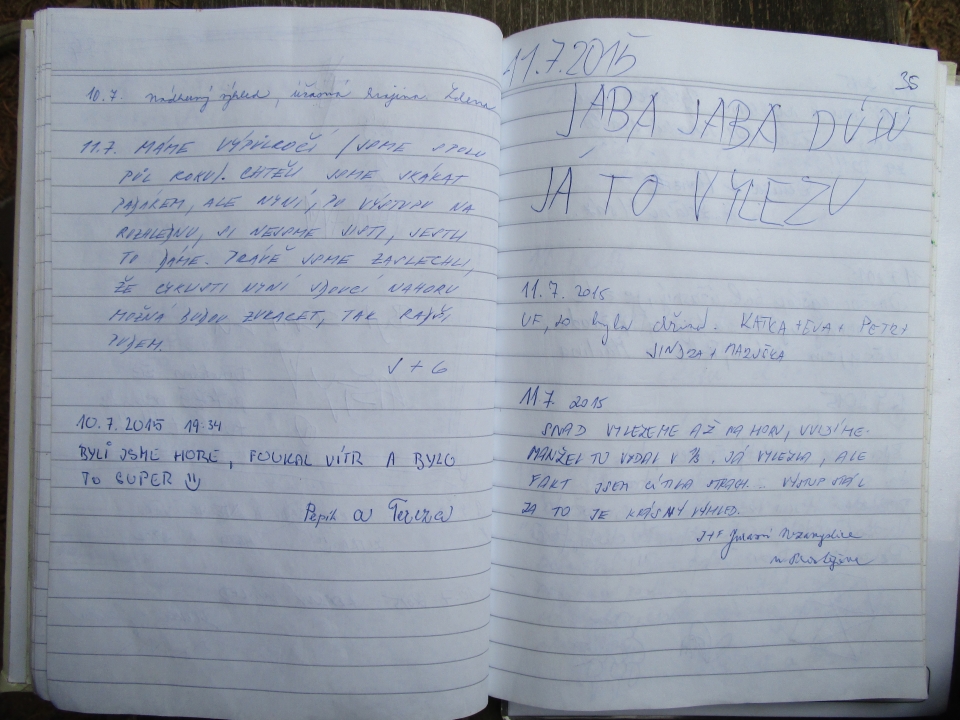 10.7. Nádherný výhled, úžasná krajina. Zdena
11.7. MÁME VÝPŮLROČÍ (JSME SPOLU
PŮL ROKU). CHTĚLI JSME SKÁKAT
PADÁKEM, ALE NYNÍ, PO VÝSTUPU NA
ROZHLEDNU, SI NEJSME JISTI, JESTLI
TO DÁME. PRÁVĚ JSME ZASLECHLI,
ŽE CYKLISTI NYNÍ JDOUCÍ NAHORU
MOŽNÁ BUDOU ZVRACET, TAK RADŠI
JDEM.
J + G
10.7.2015 19:34
BYLI JSME HOŘE, FOUKAL VÍTR A BYLO
TO SUPER
Pepík a Tereza
35
11.7.2015
JABA JABA DŮDŮ
JÁ TO VYLEZU
11.7. 2015
UF, to byla dřina. KATKA + EVA + PETR +
JINDZA +
11.7. 2015
SNAD VYLEZEME AŽ NA HORU, UVIDÍME.
MANŽEL TO VZDAL V . JÁ VYLEZLA, ALE
FAKT JSEM CÍTILA STRACH.. VÝSTUP STÁL
ZA TO JE KRÁSNÝ VÝHLED.
J+F